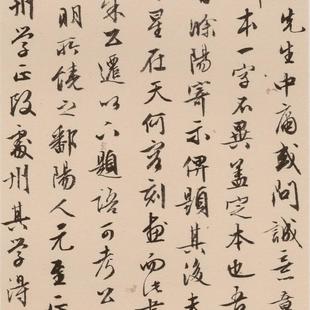 先生中庸或问诚意章
本一字不異蓋定本也吾
滁陽寄示俾題其後
星在天何容刻畫而此
朱公遷以下題語可考公
明所饒之鄱陽人元至正
州学正段處州其学得